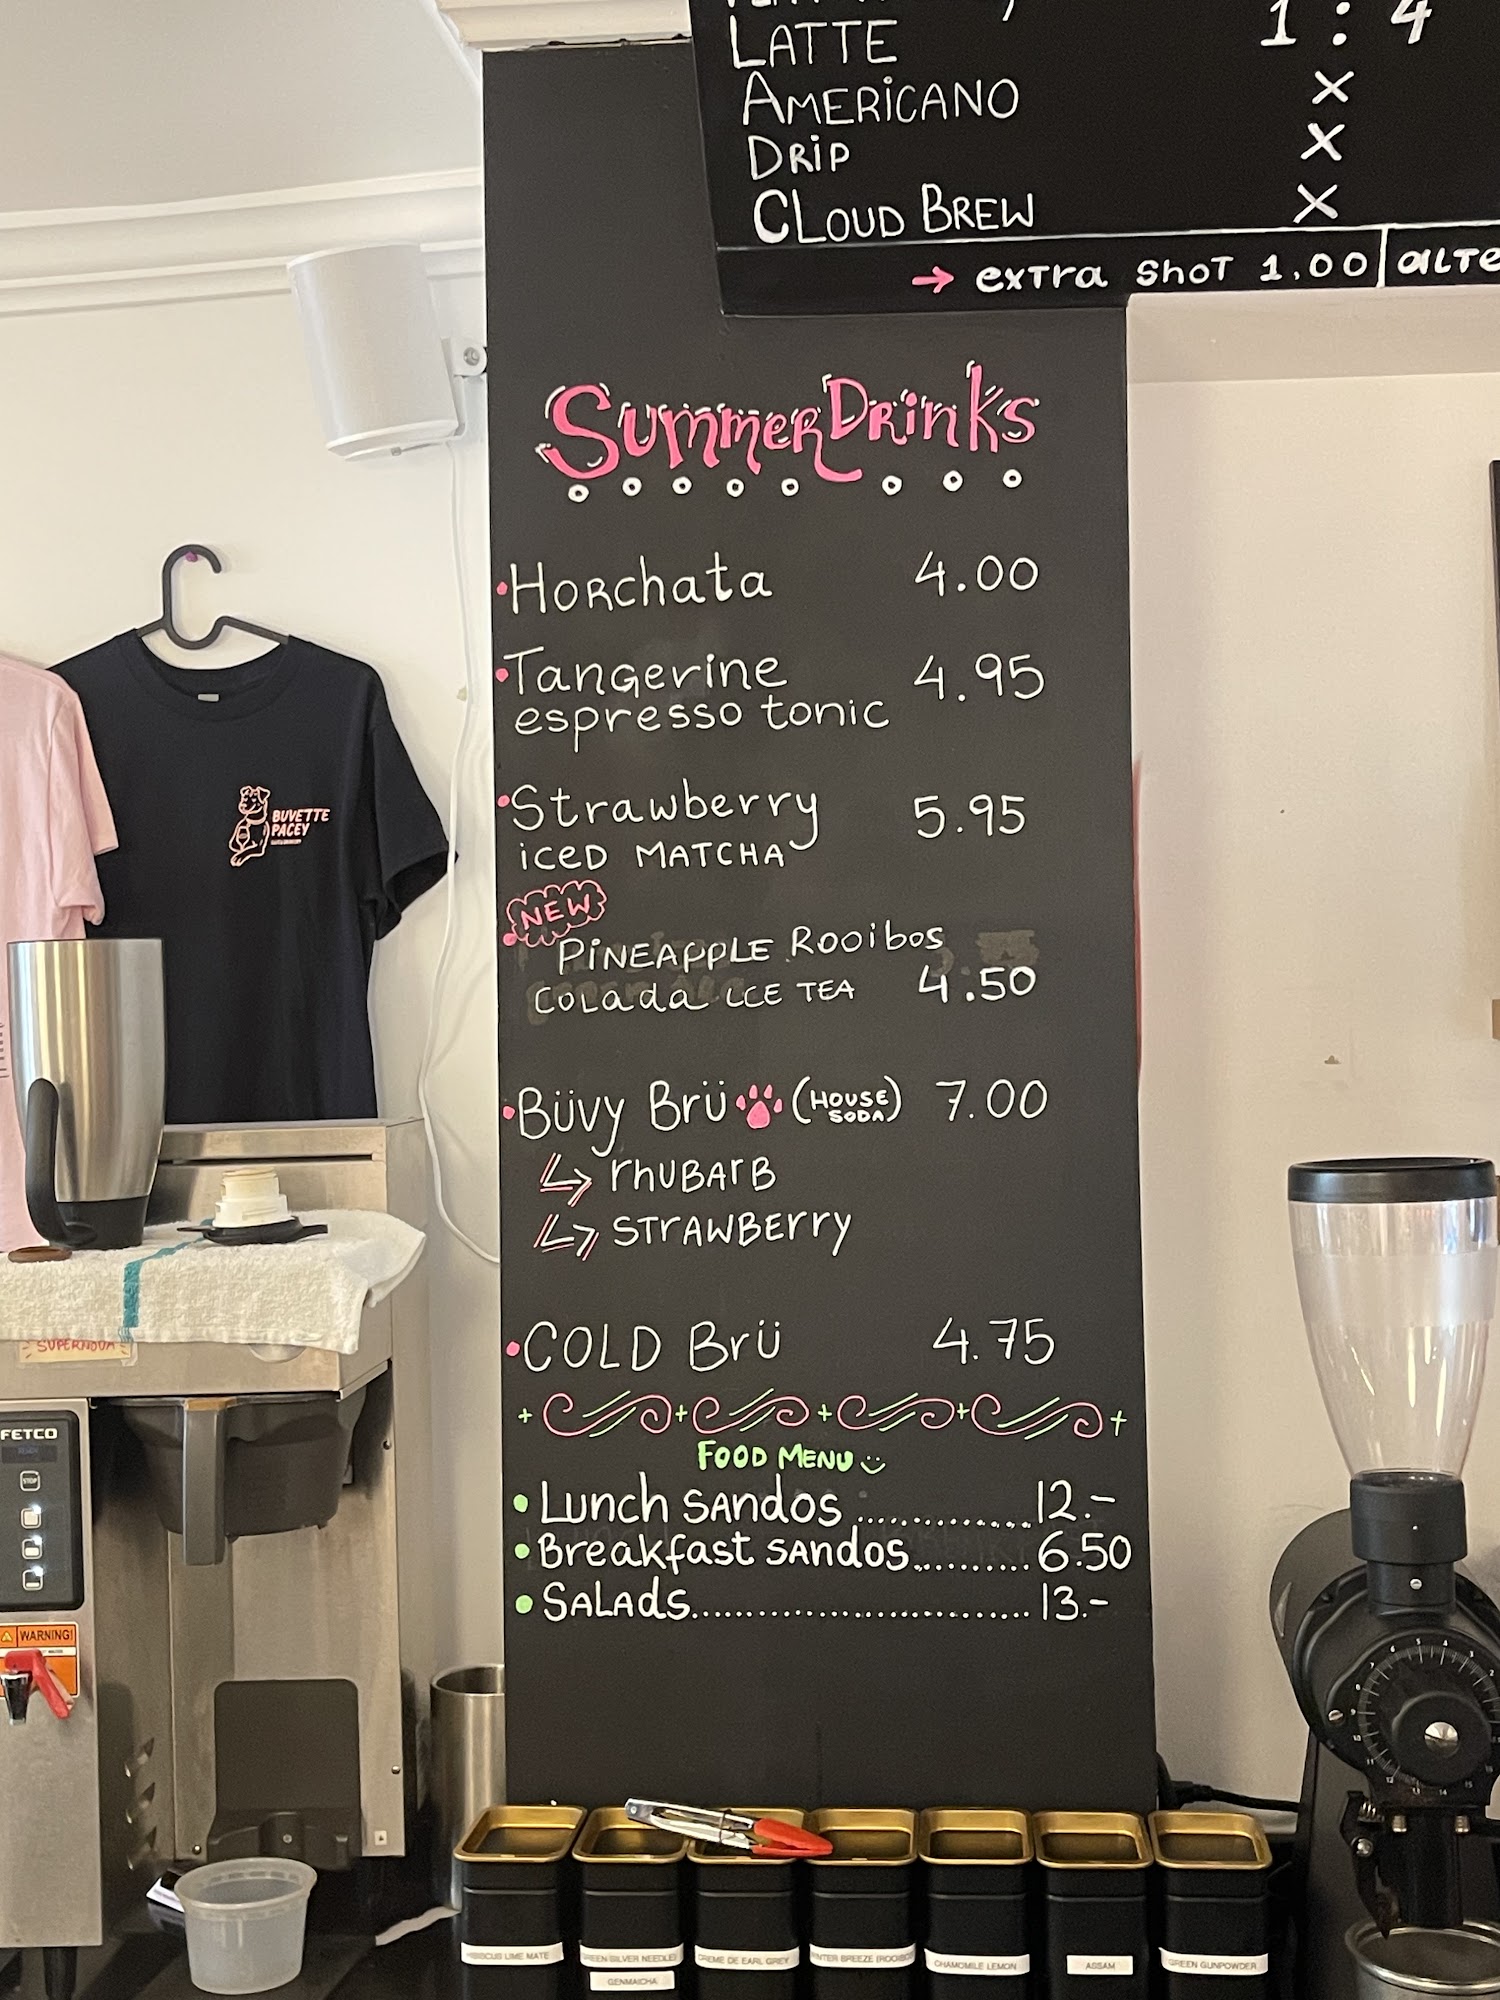 LATTE 1:4
AMERICANO X
DRIP X
CLOUD BREW X
→ extra shot 1.00
Summer Drinks
Horchata 4.00
Tangerine 4.95
espresso tonic
Strawberry 5.95
iced MATCHA
NEW
PINEAPPLE Rooibos
Colada ICE TEA 4.50
Büvy Brü (HOUSE SODA) 7.00
rhubarb
strawberry
COLD Brü 4.75
FOOD MENU
Lunch sandos ............. 12.-
Breakfast sandos.......... 6.50
Salads............................ 13.-
BUVETTE
PACEY
SUPERNOVA
FETCO
STOP
WARNING!
HIBISCUS LIME MATE
GREEN SILVER NEEDLE
GENMAICHA
CREME DE EARL GREY
WINTER BREEZE (ROOIBOS
CHAMOMILE LEMON
ASSAM
GREEN GUNPOWDER